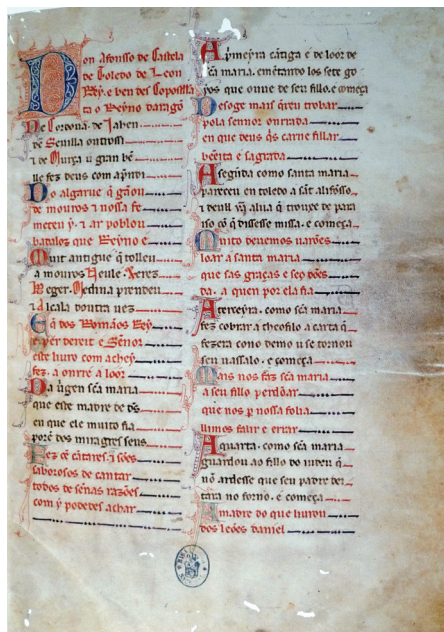 Don Affonso de Castela
de Toledo de Leon
Rey. e ben des Conpostela
ta o Reyno daragõ
De Cordoua. de Jahen
de Seuilla outrossi
⁊ de Murça u gran bẽ
lle fez deus com apndi
Do algarue q̃ gãou
de mouros ⁊ nossa fe
meteu y. ⁊ ar poblou
badaloz que Reyno e
Muit antigue q̃ tolleu
a mouros Neule. Xerez
Beger. Medina prendeu
⁊ alcala doutra uez
E q̃ dos Romãos Rey
e per dereit e Sẽnor
este liuro com achey
fez. a onrre a loor
Da uirgen sc̃a maria
que este madre de ds̃
en que ele muito fia
porẽ dos miragres seus
Fez cẽ cãtares. ⁊ sões
saborosos de cantar
todos de sennas razões
com y podedes achar
A pmeyra cãtiga e de loor de
sc̃a maria. emẽtando los sete go
yos que ouue de seu fillo. e começa
Desoge mais q̃reu trobar
pola sennor onrrada
en que deus q̃s carne fillar
bẽeita e sagrada
A segũda como santa maria
pareceu en toledo a sãt alifõsso
⁊ deull uũ alua q̃ trouxe de parayso
cõ q̃ dissesse missa. e começa
Muito deuemos uarões
loar a santa maria
que sas graças e seꝯ dões
da. a quen por ela fia
A terceyra. como sc̃a maria
fez cobrar a theofilo a carta q̃
fezera cono demo u se tornou
seu uassalo. e começa
Mais nos faz sc̃a maria
a seu fillo perdõar
que nos p nossa folia
llimos falir e errar
A quarta. como sc̃a maria
guardou ao fillo do iudeu q̃
nõ ardesse que seu padre dei
tara no forno. e começa
A madre do que liurou
dos leões daniel